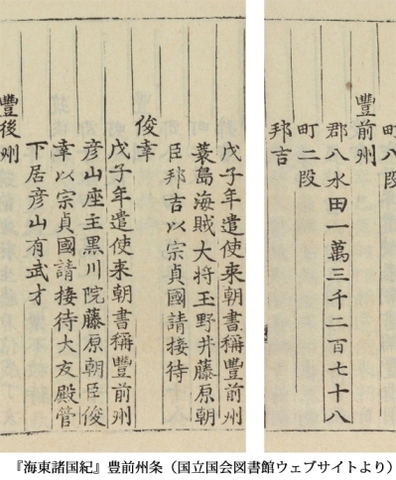 町八段
豊前州
郡八水田一萬三千二百七十八
町二段
邦吉
戊子年遣使来朝書稱豊前州
蓑島海賊大将玉野井藤原朝
臣邦吉以宗貞國請接待
俊幸
戊子年遣使来朝書稱豊前州
彦山座主黒川院藤原朝臣俊
幸以宗貞國請接待大友殿管
下居彦山有武才
豊後州
『海東諸国紀』豊前州条（国立国会図書館ウェブサイトより）